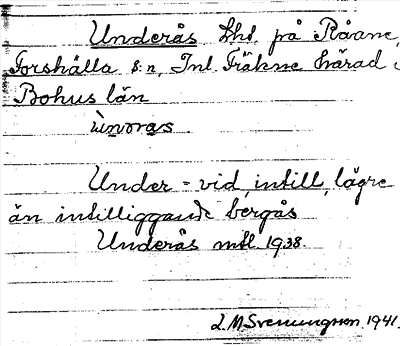 Underås Lhl. på Råane,
Forshälla s:n, Inl. Fräkne härad i
Bohus län
ùnəras
Under = vid, intill, lägre
än intilliggande bergås
Underås mtl. 1938.
L. M. Svenungsson 1941.